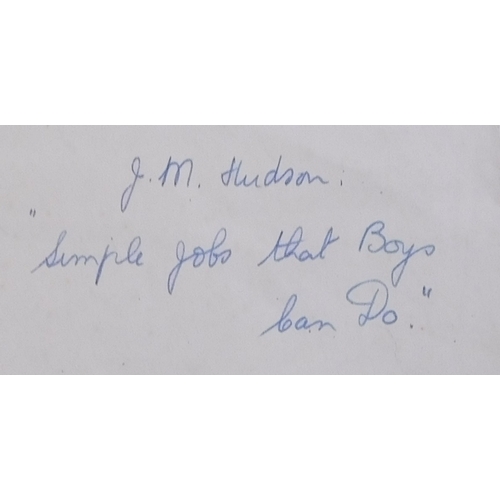 J. M. Hudson.
"Simple Jobs that Boys
Can Do."